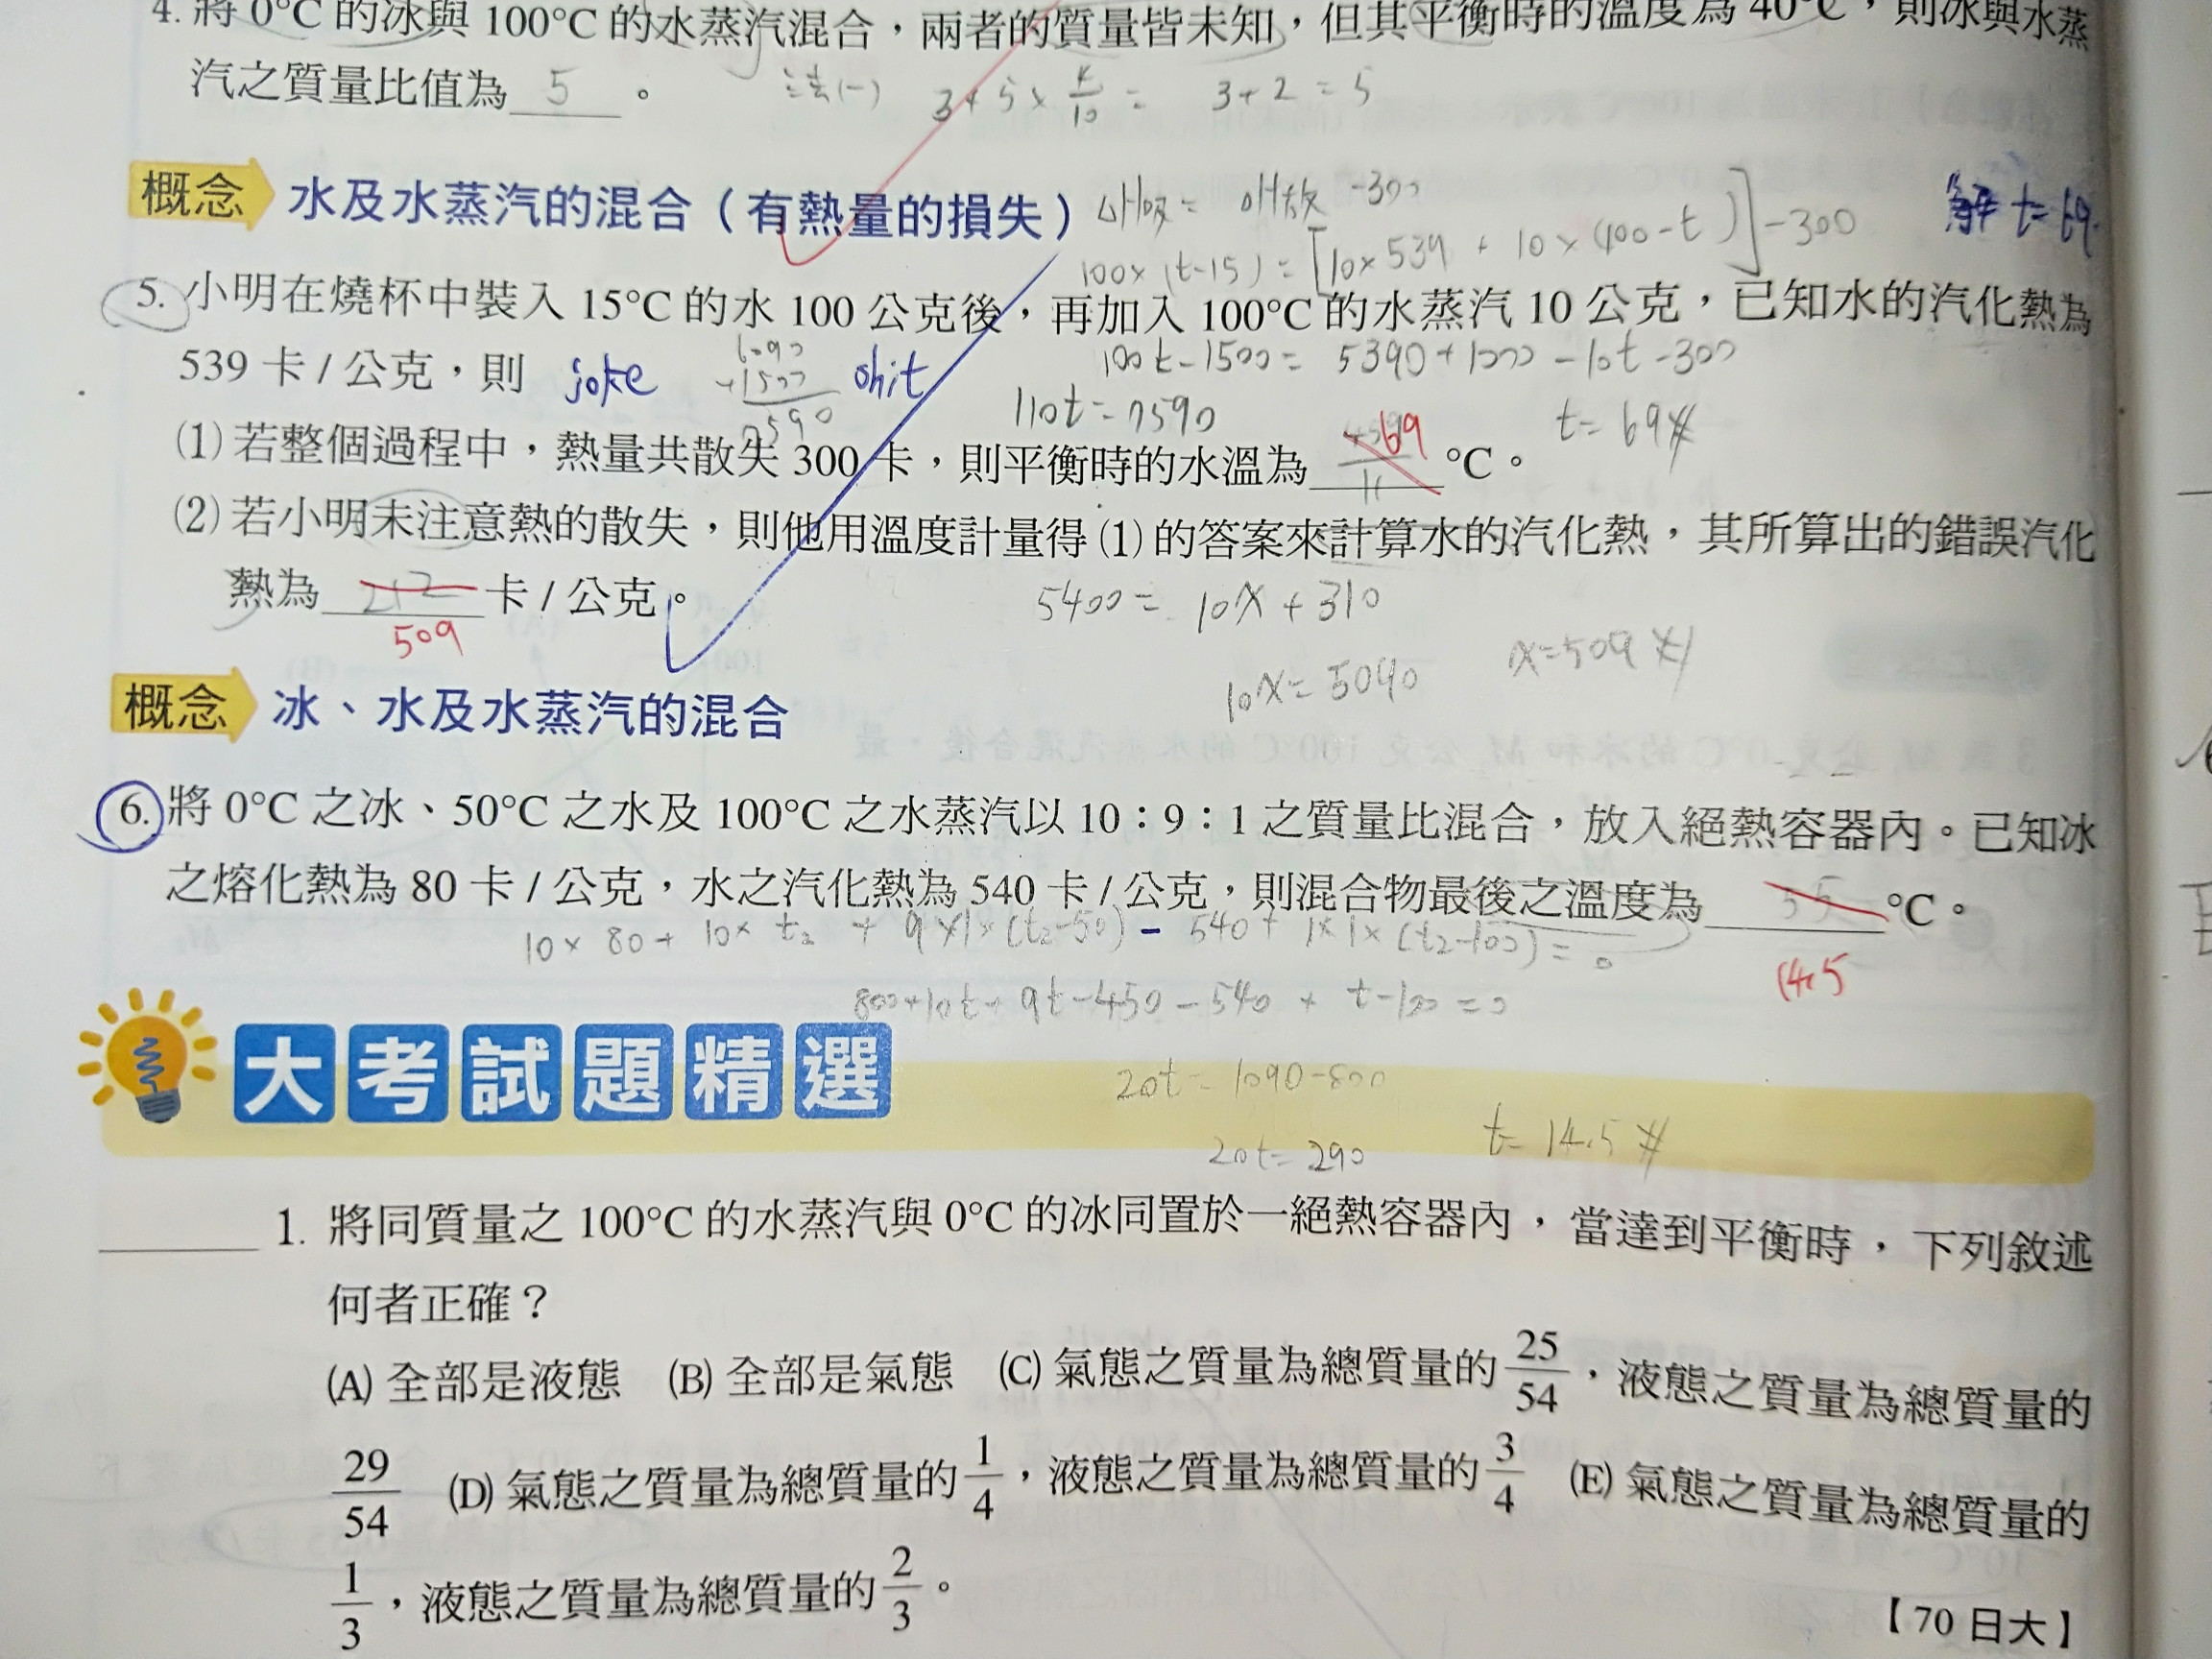 4. 將 0°C 的冰與 100°C 的水蒸汽混合，兩者的質量皆未知，但其平衡時的溫度為 40°C，則冰與水蒸
汽之質量比值為 5 。
法(一) 3+5×4/10= 3+2=5
概念 水及水蒸汽的混合（有熱量的損失）
ΔH吸= ΔH放 -300
100×(t-15)=[10×539 + 10×(100-t)]-300
解 t=69.
5. 小明在燒杯中裝入 15°C 的水 100 公克後，再加入 100°C 的水蒸汽 10 公克，已知水的汽化熱為
539 卡 / 公克，則
joke
6090
+1500
7590
shit
100t-1500= 5390+1000-10t-300
110t=7590
t=69#
(1) 若整個過程中，熱量共散失 300 卡，則平衡時的水溫為 69 °C。
(2) 若小明未注意熱的散失，則他用溫度計量得 (1) 的答案來計算水的汽化熱，其所算出的錯誤汽化
熱為 212 卡 / 公克。
509
5400= 10x+310
10x=5090
x=509#
概念 冰、水及水蒸汽的混合
6. 將 0°C 之冰、50°C 之水及 100°C 之水蒸汽以 10：9：1 之質量比混合，放入絕熱容器內。已知冰
之熔化熱為 80 卡 / 公克，水之汽化熱為 540 卡 / 公克，則混合物最後之溫度為 55 °C。
14.5
10×80+10×t₂ + 9×1×(t₂-50) - 540+1×1×(t₂-100)=0
800+10t+9t-450-540 + t-100=0
20t=1090-800
20t=290
t=14.5#
大考試題精選
1. 將同質量之 100°C 的水蒸汽與 0°C 的冰同置於一絕熱容器內，當達到平衡時，下列敘述
何者正確？
(A) 全部是液態 (B) 全部是氣態 (C) 氣態之質量為總質量的 25/54，液態之質量為總質量的
29/54 (D) 氣態之質量為總質量的 1/4，液態之質量為總質量的 3/4 (E) 氣態之質量為總質量的
1/3，液態之質量為總質量的 2/3。
【70 日大】